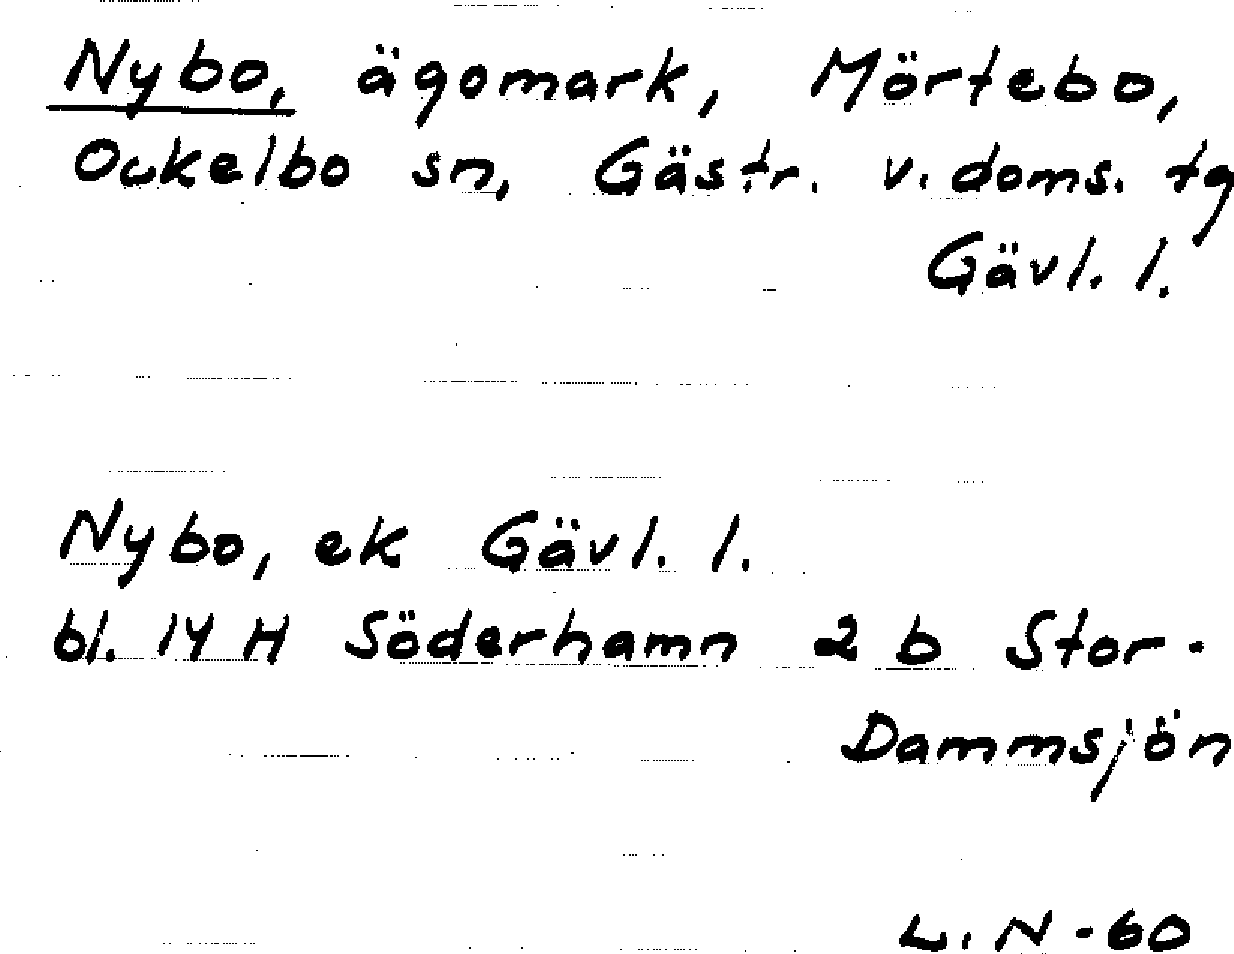 Nybo, ägomark, Mörtebo,
Ockelbo sn, Gästr. v. doms. tg
Gävl. l.
Nybo, ek Gävl. l.
bl. 14 H Söderhamn 2 b Stor-
Dammsjön
L. N - 60